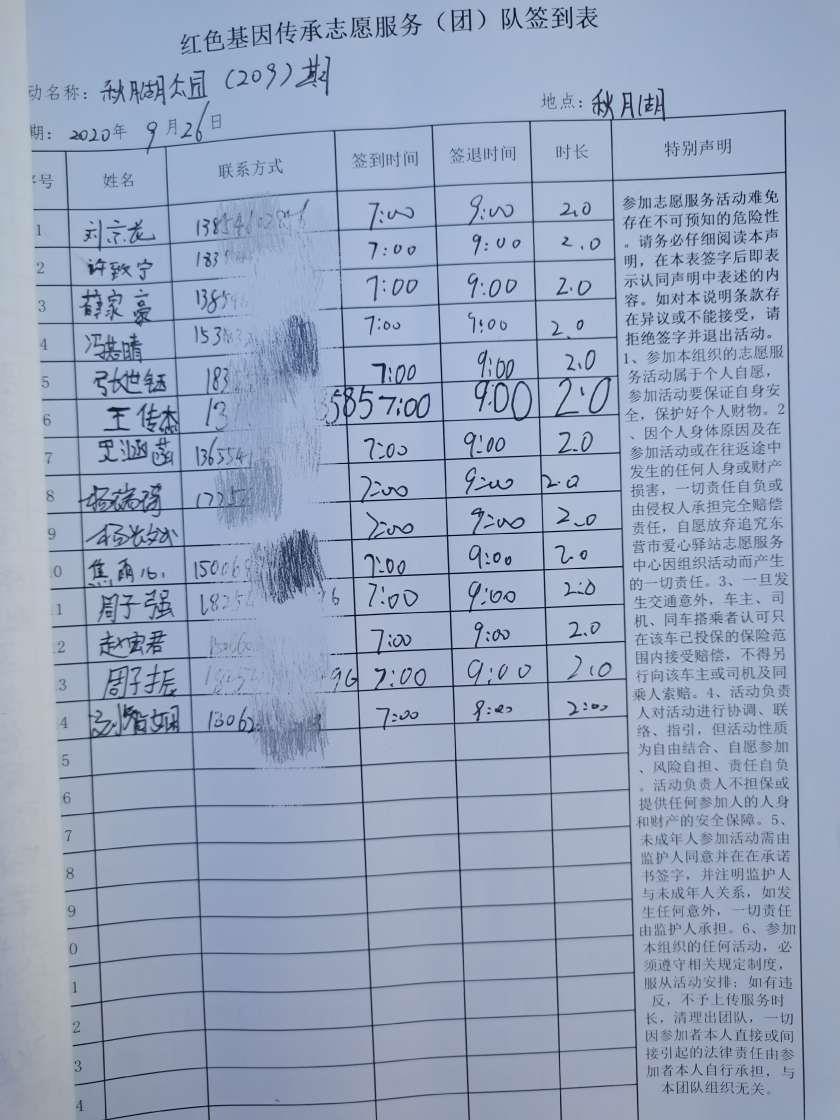 红色基因传承志愿服务（团）队签到表
动名称：秋月湖公园（209）期
地点：秋月湖
期：2020年9月26日
序号 姓名 联系方式 签到时间 签退时间 时长 特别声明
1 刘京龙 138546 7:00 9:00 2.0
2 许致宁 183 7:00 9:00 2.0
3 薛家豪 138546 7:00 9:00 2.0
4 冯 晴 153 7:00 9:00 2.0
5 张世钰 183 7:00 9:00 2.0
6 王传杰 13 585 7:00 9:00 2.0
7 涵菡 136554 7:00 9:00 2.0
8 杨瑞琦 7:00 9:00 2.0
9 7:00 9:00 2.0
0 焦雨 15006 7:00 9:00 2.0
1 周子强 1825 96 7:00 9:00 2.0
2 赵宏君 7:00 9:00 2.0
3 周子振 96 7:00 9:00 2.0
4 13062 7:00 9:00 2:00
5
6
7
8
9
0
1
2
3
4
参加志愿服务活动难免
存在不可预知的危险性
。请务必仔细阅读本声
明，在本表签字后即表
示认同声明中表述的内
容。如对本说明条款存
在异议或不能接受，请
拒绝签字并退出活动。
1、参加本组织的志愿服
务活动属于个人自愿，
参加活动要保证自身安
全，保护好个人财物。2
、因个人身体原因及在
参加活动或在往返途中
发生的任何人身或财产
损害，一切责任自负或
由侵权人承担完全赔偿
责任，自愿放弃追究东
营市爱心驿站志愿服务
中心因组织活动而产生
的一切责任。3、一旦发
生交通意外，车主、司
机、同车搭乘者认可只
在该车已投保的保险范
围内接受赔偿，不得另
行向该车主或司机及同
乘人索赔。4、活动负责
人对活动进行协调、联
络、指引，但活动性质
为自由结合、自愿参加
、风险自担、责任自负
。活动负责人不担保或
提供任何参加人的人身
和财产的安全保障。5、
未成年人参加活动需由
监护人同意并在在承诺
书签字，并注明监护人
与未成年人关系，如发
生任何意外，一切责任
由监护人承担。6、参加
本组织的任何活动，必
须遵守相关规定制度，
服从活动安排；如有违
反，不予上传服务时
长，清理出团队，一切
因参加者本人直接或间
接引起的法律责任由参
加者本人自行承担，与
本团队组织无关。